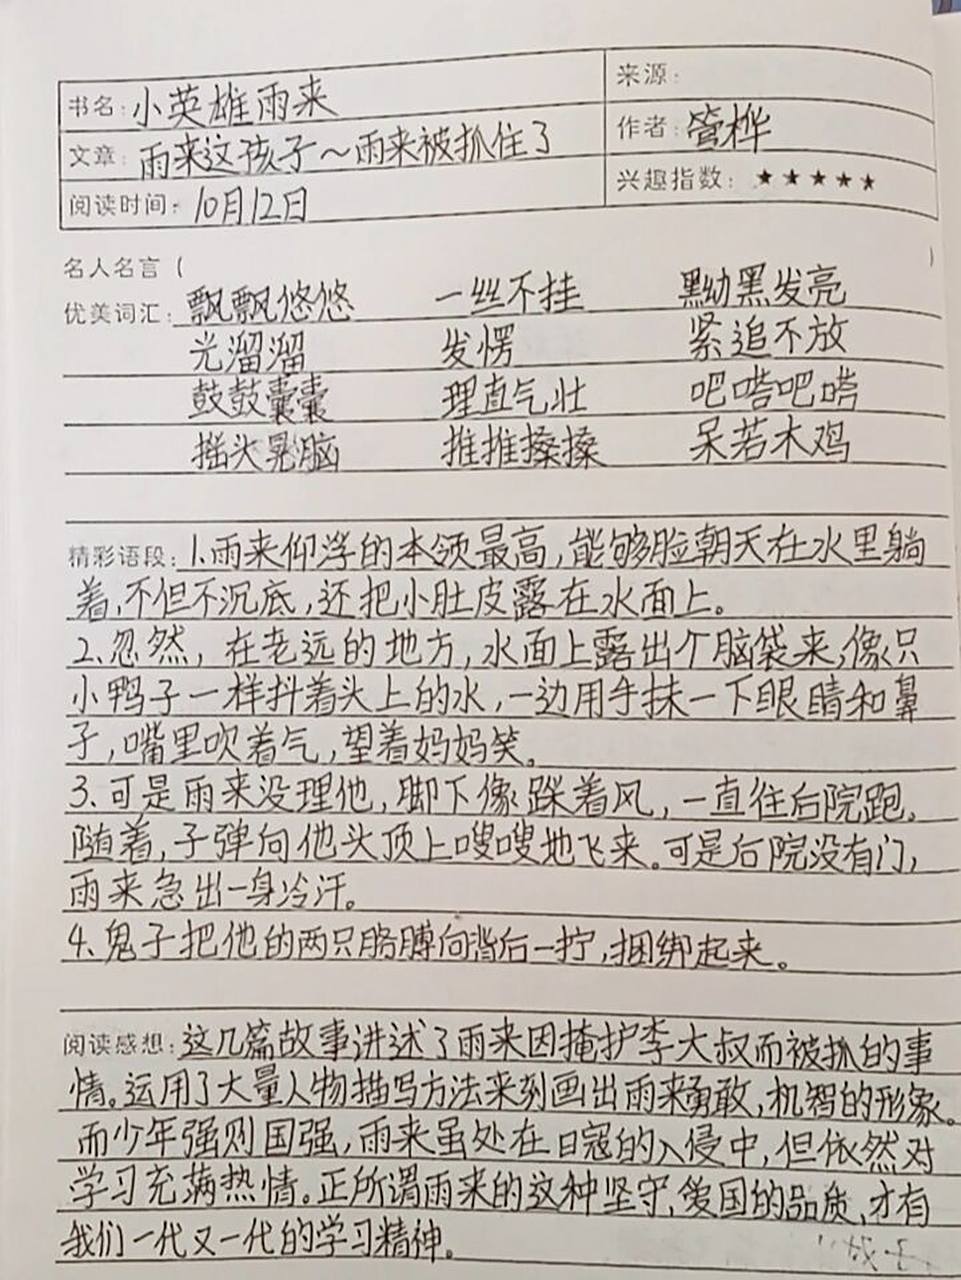 书名：小英雄雨来
来源：
文章：雨来这孩子～雨来被抓住了
作者：管桦
阅读时间：10月12日
兴趣指数：★★★★★
名人名言（ ）
优美词汇：飘飘悠悠 一丝不挂 黑黝黑发亮
光溜溜 发愣 紧追不放
鼓鼓囊囊 理直气壮 吧嗒吧嗒
摇头晃脑 推推搡搡 呆若木鸡
精彩语段：1.雨来仰浮的本领最高，能够脸朝天在水里躺
着，不但不沉底，还把小肚皮露在水面上。
2、忽然，在老远的地方，水面上露出个脑袋来，像只
小鸭子一样抖着头上的水，一边用手抹一下眼睛和鼻
子，嘴里吹着气，望着妈妈笑。
3、可是雨来没理他，脚下像踩着风，一直往后院跑。
随着，子弹向他头顶上嗖嗖地飞来。可是后院没有门，
雨来急出一身冷汗。
4、鬼子把他的两只胳膊向背后一拧，捆绑起来。
阅读感想：这几篇故事讲述了雨来因掩护李大叔而被抓的事
情。运用了大量人物描写方法来刻画出雨来勇敢，机智的形象。
而少年强则国强，雨来虽处在日寇的入侵中，但依然对
学习充满热情。正所谓雨来的这种坚守，爱国的品质，才有
我们一代又一代的学习精神。